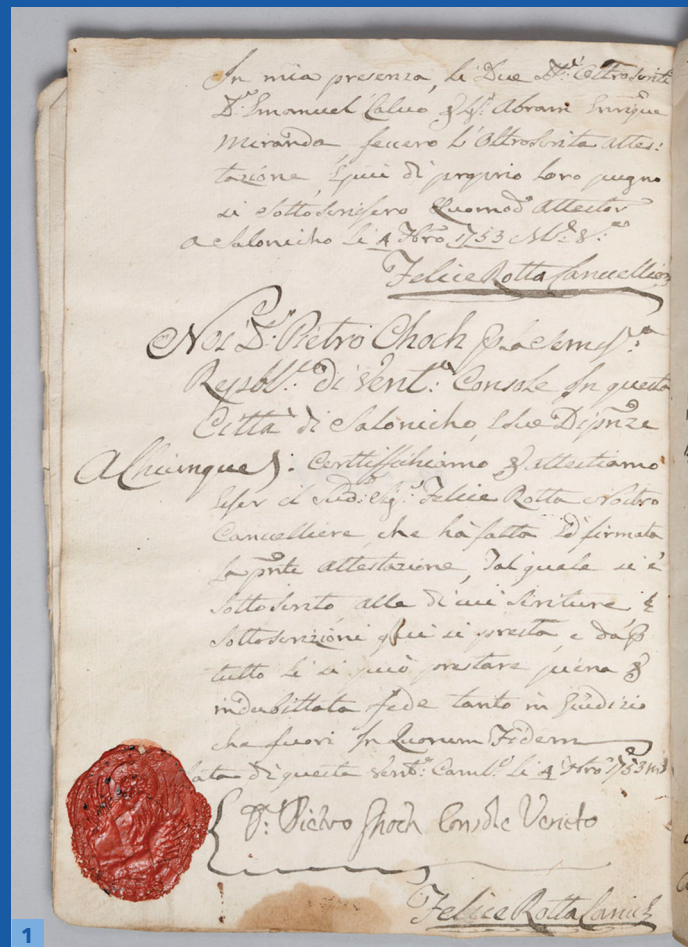 In mia presenza, li Due Dti. Oltroscritti
Dr. Emanuel Calvo & Sr. Abram Enrique
Miranda, fecero l'Oltroscrita attes:
tazione, e qui di proprio loro pugno
si sottoscrissero Quomodo attestor
a Salonicho li 4 7bro. 1753 M.V.
Felice Rotta Cancellier
Noi Dr. Pietro Choch p. la Serma.
Repub.ca di Venta. Console In questa
Città di Salonicho, e sue Dipnze
A Chiunque: Certiffichiamo & attestiamo
esser il sudo. Sigr. Felice Rotta Nostro
Cancelliere, che hà fatta ed firmata
la pnte attestazione, Tal quale si è
sottoscrito, alle di cui scriture &
sottoscrizioni qui si presta, e da p
tutto li si può prestare piena &
indubittata fede tanto in Giudizio
che fuori In Quorum Fidem
Data di questa Venta. Canc.a li 4 7bro. 1753
Dr. Pietro Choch Console Veneto
Felice Rotta Canclr
1